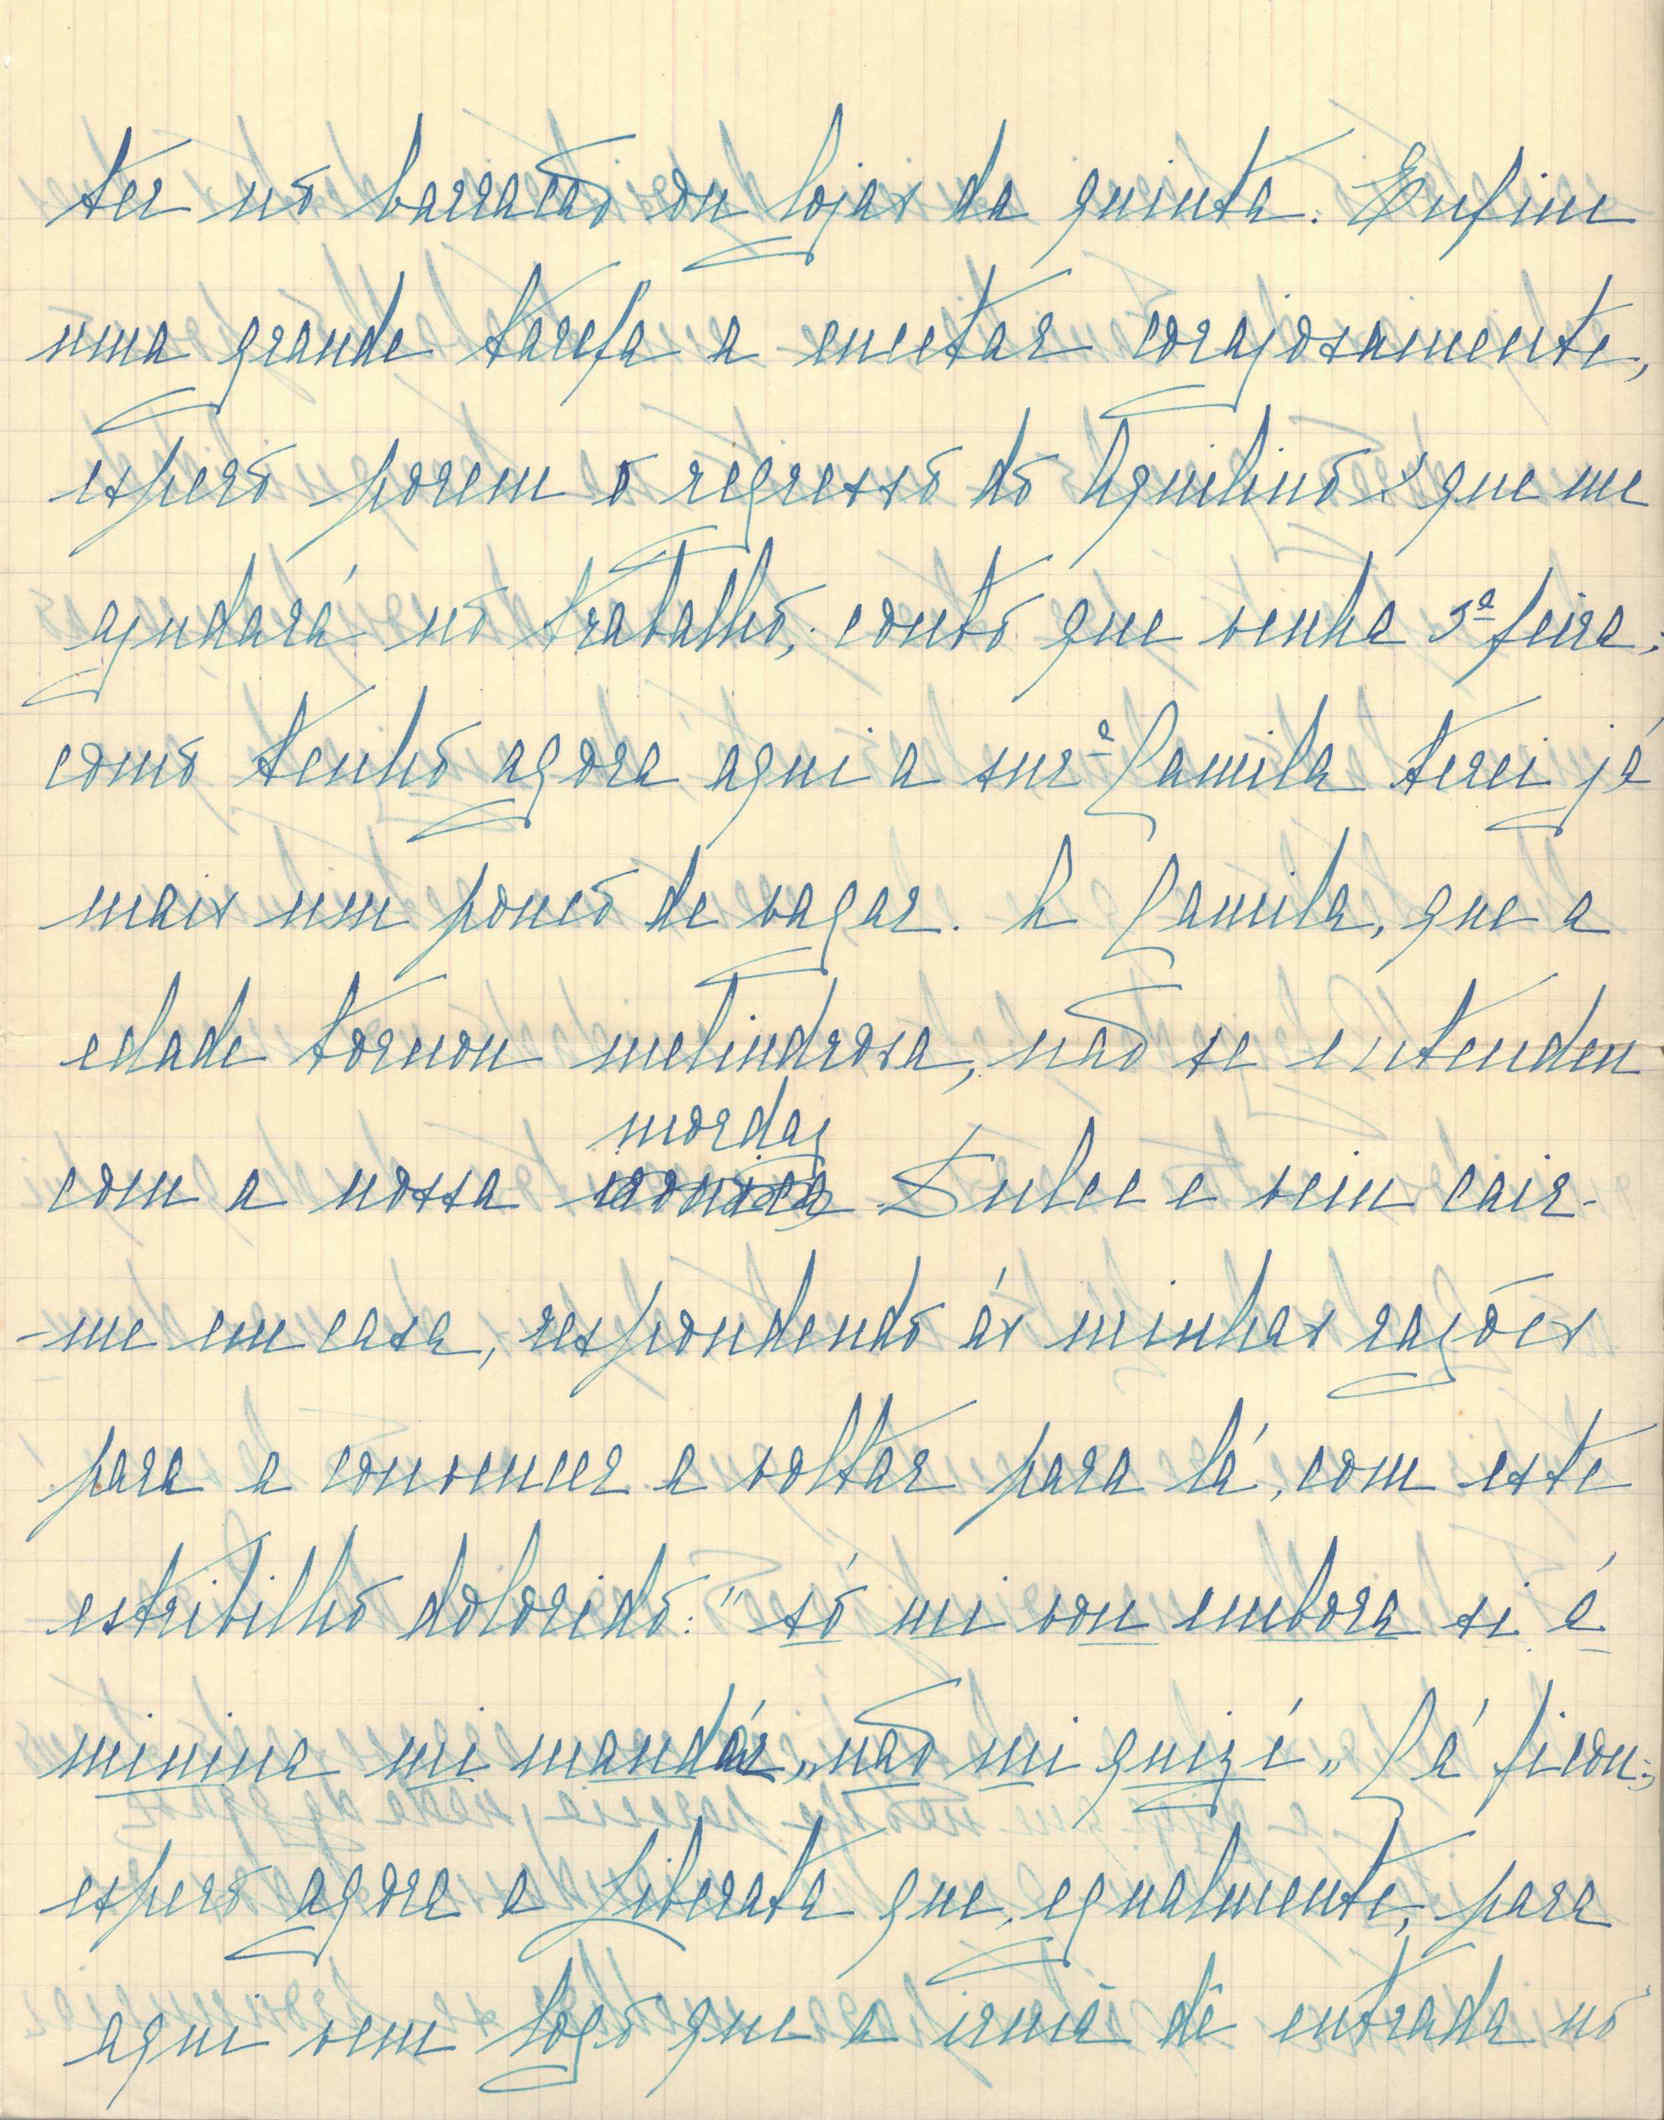 ter no barracão ou lojas da quinta. Enfim
uma grande tarefa a encetar corajosamente,
espero porem o regresso do Aquilino que me
ajudará no trabalho, conto que venha 3ª feira;
como tenho agora aqui a snrª Camila terei já
mais um pouco de vagar. A Camila, que a
edade tornou melindrosa, não se entendeu
mordaz
com a nossa Dulce e veiu cair-
-me em casa, respondendo ás minhas razões
para a convencer a voltar para lá, com este
estribilho dolorido: "só mi vou embora si á
minina mi mandár, não mi quizé" Cá ficou;
espero agora a Liberata que, egualmente, para
aqui vem logo que a irmã dê entrada no